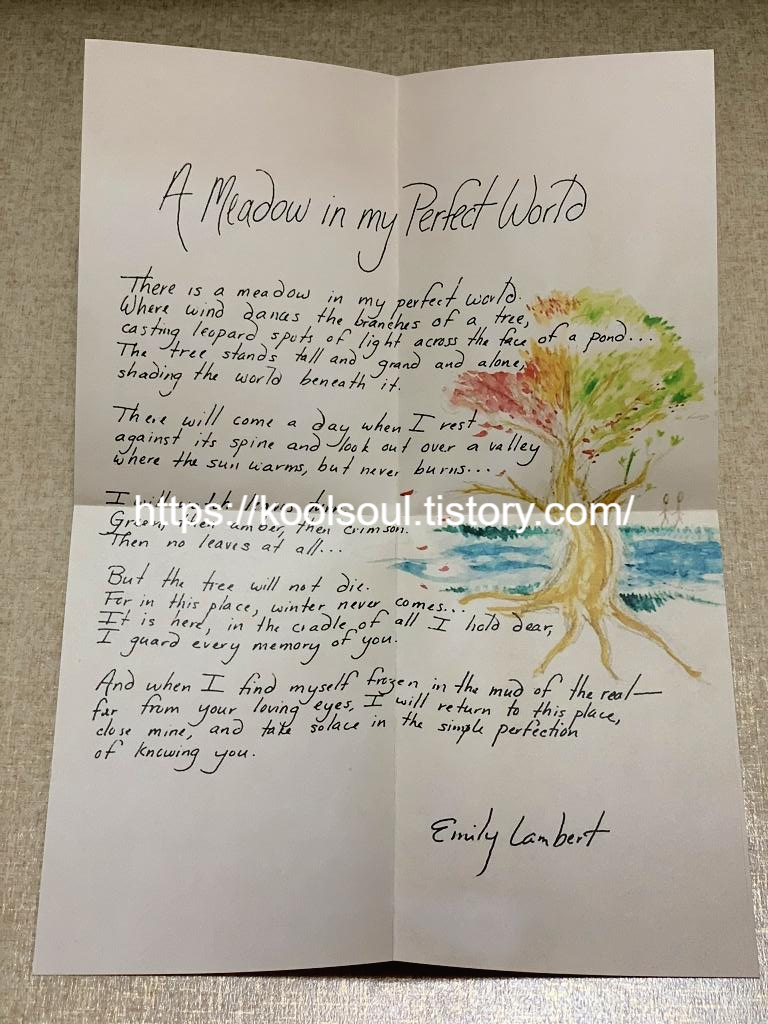 A Meadow in my Perfect World
There is a meadow in my perfect world.
Where wind dances the branches of a tree,
casting leopard spots of light across the face of a pond...
The tree stands tall and grand and alone,
shading the world beneath it.
There will come a day when I rest
against its spine and look out over a valley
where the sun warms, but never burns...
I will
https://koolsoul.tistory.com/
Green, then amber, then crimson.
Then no leaves at all...
But the tree will not die.
For in this place, winter never comes...
It is here, in the cradle of all I hold dear,
I guard every memory of you.
And when I find myself frozen in the mud of the real—
far from your loving eyes, I will return to this place,
close mine, and take solace in the simple perfection
of knowing you.
Emily Lambert